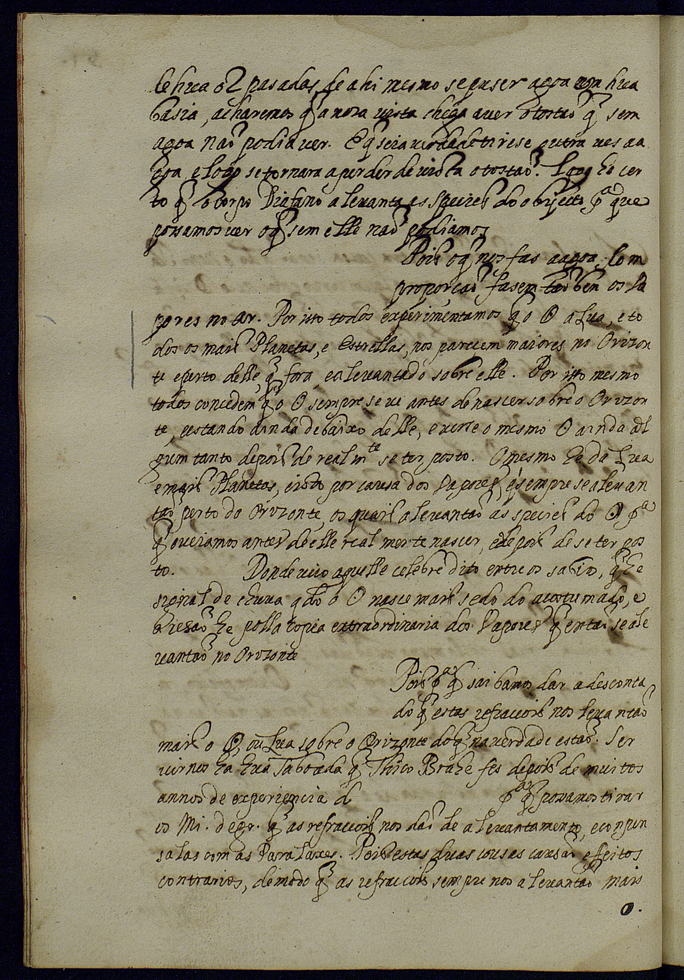 de hua o 2 pasadas, de ahi mesmo se puser agoa nua hua
basia, acharemos q̃ a nosa vista chega a ver o tostaõ q̃ sem
agoa naõ podia ver. E q̃ seia verdade tirese outra ves a a
goa, e logo se tornara a perder de vista o tostaõ. Logo he cer
to q̃ o corpo Diafano alevanta as species do obiecto pª que
possamos ver o q̃ sem elle naõ podiamos
Pois o q̃ nos fas a agoa, com
proporcaõ fasem taõ bem os va
pores no ar. Por isto todos experimentamos q̃ o ☉ a Lua, e to
dos os mais Planetas, e Estrellas, nos parecem maiores no Orizon
te e perto delle, q̃ fora e alevantado sobre elle. Por isso mesmo
todos concedem q̃ o ☉ sempre se ve antes de nascer sobre o Orizon
te, estando ainda debaixo delle, e verse o mesmo ☉ ainda al
gum tanto depois de realmte se ter posto. O mesmo he da Lua
e mais Planetas, e isto por causa dos Vapores, q̃ sempre se alevan
taõ perto do Orizonte, os quais alevantaõ as species do ☉ pª
q̃ o vejamos antes de elle realmente nascer, e depois de se ter pos
to. Donde veio aquelle celebre dito entre os sabios, q̃ he
sinal de chuva qdo o ☉ nasce mais sedo do acostumado, e
a resaõ he polla copia extraordinaria dos Vapores q̃ entaõ se ale
vantaõ no Orizonte
Pois pª q̃ saibamos dar a desconta
do q̃ estas refraccois nos levantaõ
mais o ☉, ou Lua sobre o Orizonte do q̃ na verdade estaõ. Ser
virnos ha hua Taboada q̃ Thico Brahe fes depois de muitos
annos de experiencia d pª q̃ possamos tirar
os Mi. de gr. q̃ as refraccois nos daõ de alevantamento, e conjun
salas com as Paralaxes. Pois estas duas cousas causaõ effeitos
contrarios, de modo q̃ as refraccois sempre nos alevantaõ mais
o.